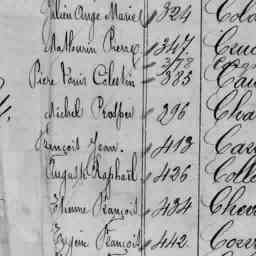 Julien Ange Marie 324 Col
Mathurin Pierre 347
378
Pierre Louis Célestin 385 Cau
Michel Prosper 296 Cha
François Jean. 413 Cas
Auguste Raphaël 426 Coll
Etienne François 434 Chev
Eugène François 442